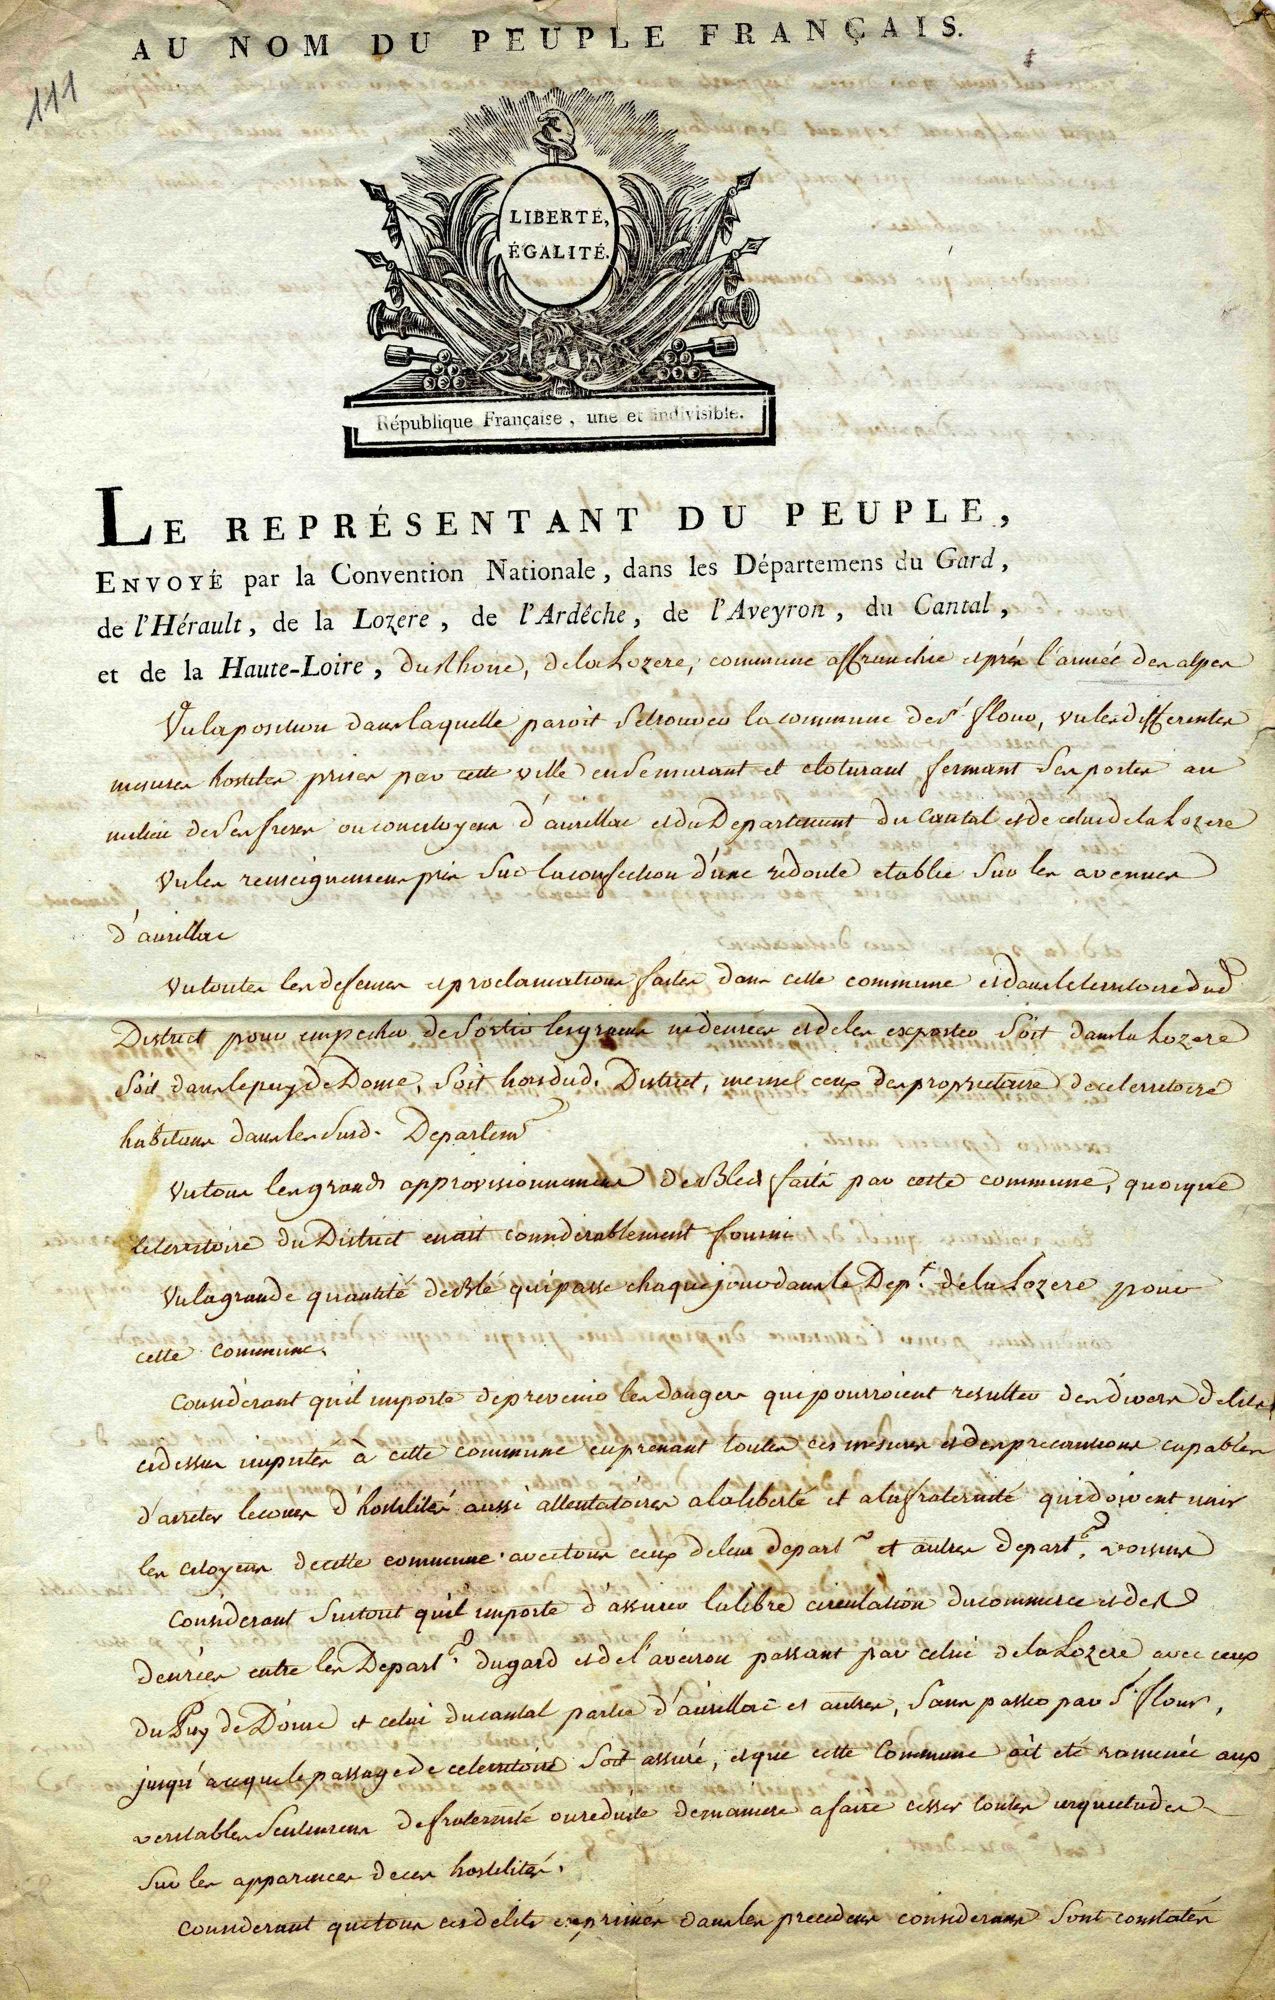 AU NOM DU PEUPLE FRANÇAIS.
111
LIBERTÉ,
ÉGALITÉ.
République Française, une et indivisible.
LE REPRÉSENTANT DU PEUPLE,
ENVOYÉ par la Convention Nationale, dans les Départemens du Gard,
de l'Hérault, de la Lozere, de l'Ardêche, de l'Aveyron, du Cantal,
et de la Haute-Loire, du Rhone, de la Lozere, commune affranchie et près l'armée des alpes
Vu la position dans laquelle paroit se trouver la commune de St flour, vu les differentes
mesures hostiles prises par cette ville en se murant et cloturant fermant ses portes au
milieu de ses freres ou concitoyens d'aurillac et du Departement du Cantal et de celui de la Lozere
Vu les renseignemens pris sur la confection d'une redoute etablie sur les avenues
d'aurillac
Vu toutes les defenses et proclamations faites dans cette commune et dans le territoire dud
District pour empecher de sortir les grains ni denrées et de les exporter soit dans la Lozere
soit dans le puy de Dome, soit hors dud. District, mêmes ceux des proprietaire de ce territoire
habitans dans les susd. Departems
Vu tous les grands approvisionnemens de Bled faits par cette commune, quoique
le territoire du District en ait considerablement fourni
Vu la grande quantité de Blé qui passe chaque jour dans le Dept. de la Lozere pour
cette commune.
Considerant qu'il importe de prevenir les dangers qui pourroient resulter des divers delits
cidessus imputés à cette commune en prenant toutes ces mesures et des precautions capables
d'arreter le cours d'hostilités aussi attentatoires a la liberté et a la fraternité qui doivent unir
les citoyens de cette commune avec tous ceux de leur depart et autres depart. voisins
Considerant surtout qu'il importe d'assurer la libre circulation du commerce et des
denrées entre les Depart. du gard et de l'aveirou passant par celui de la Lozere avec ceux
du Puy de Dôme et celui du cantal partie d'aurillac et autres, sans passer par St flour,
jusqu'a ce que le passage de ce territoire soit assuré, et que cette Commune ait eté ramenée aux
veritables sentimens de fraternité ou reduite de maniere a faire cesser toutes inquietudes
sur les apparences de ces hostilités.
Considerant que tous ces delits exprimés dans les precedens considerans sont constatés